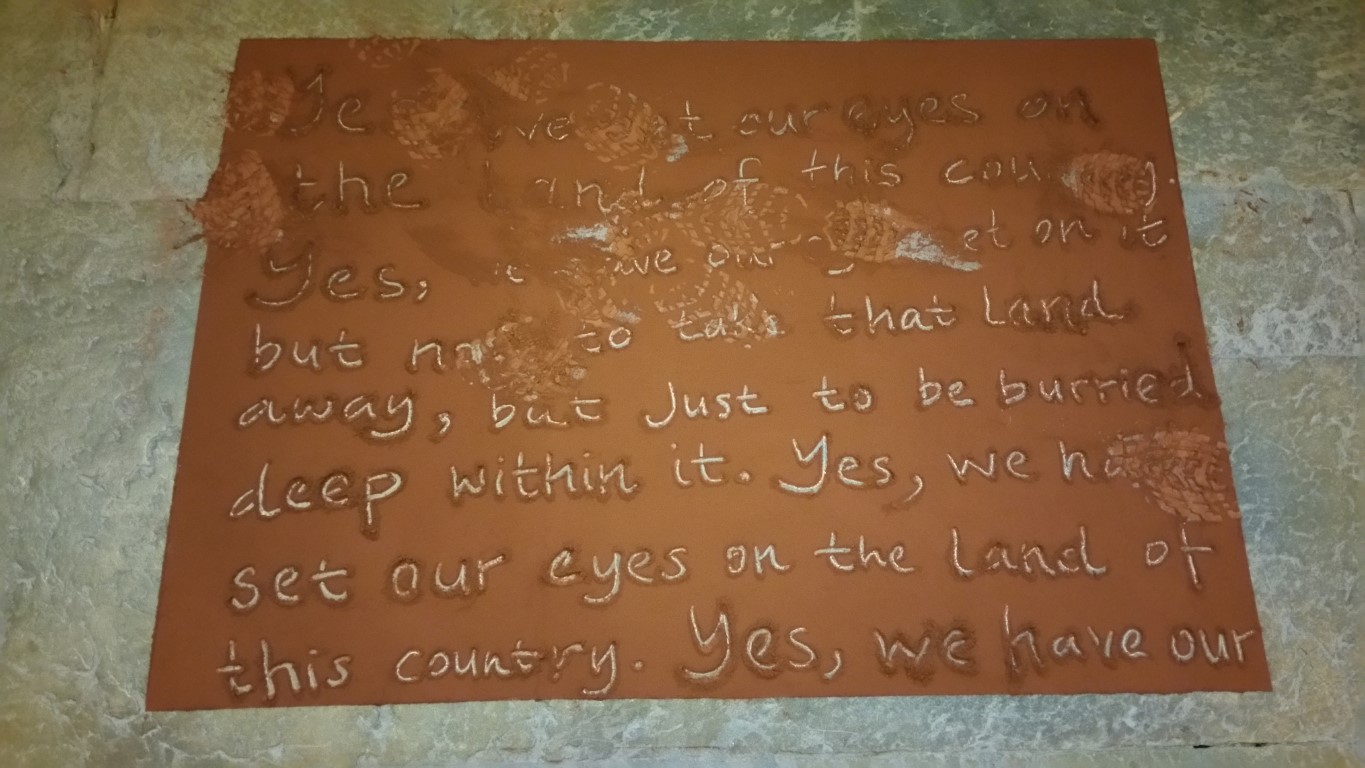 set our eyes on
the Land of this
Yes, our on it
but to take that Land
away, but Just to be burried
deep within it. Yes, we
set our eyes on the Land of
this country. Yes, we have our